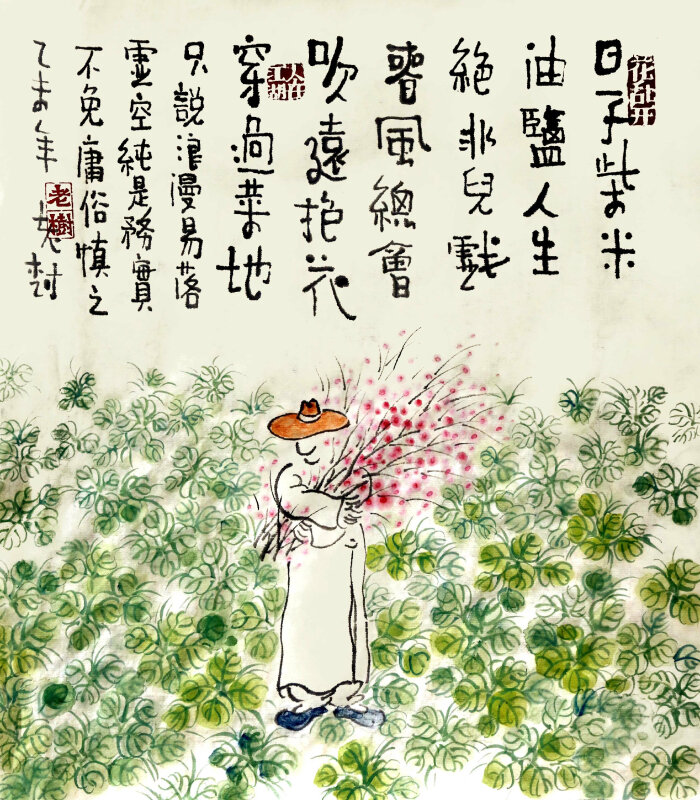 花乱开
日子柴米
油鹽人生
絕非兒戲
春風總會
吹遠抱花
穿過菜地
人在江湖
只說浪漫易落
虛空純是務實
不免庸俗慎之
乙未年老树
老樹